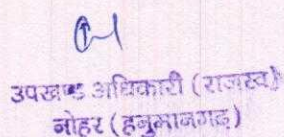 उपखण्ड अधिकारी (राजस्व)
नोहर (हनुमानगढ़)